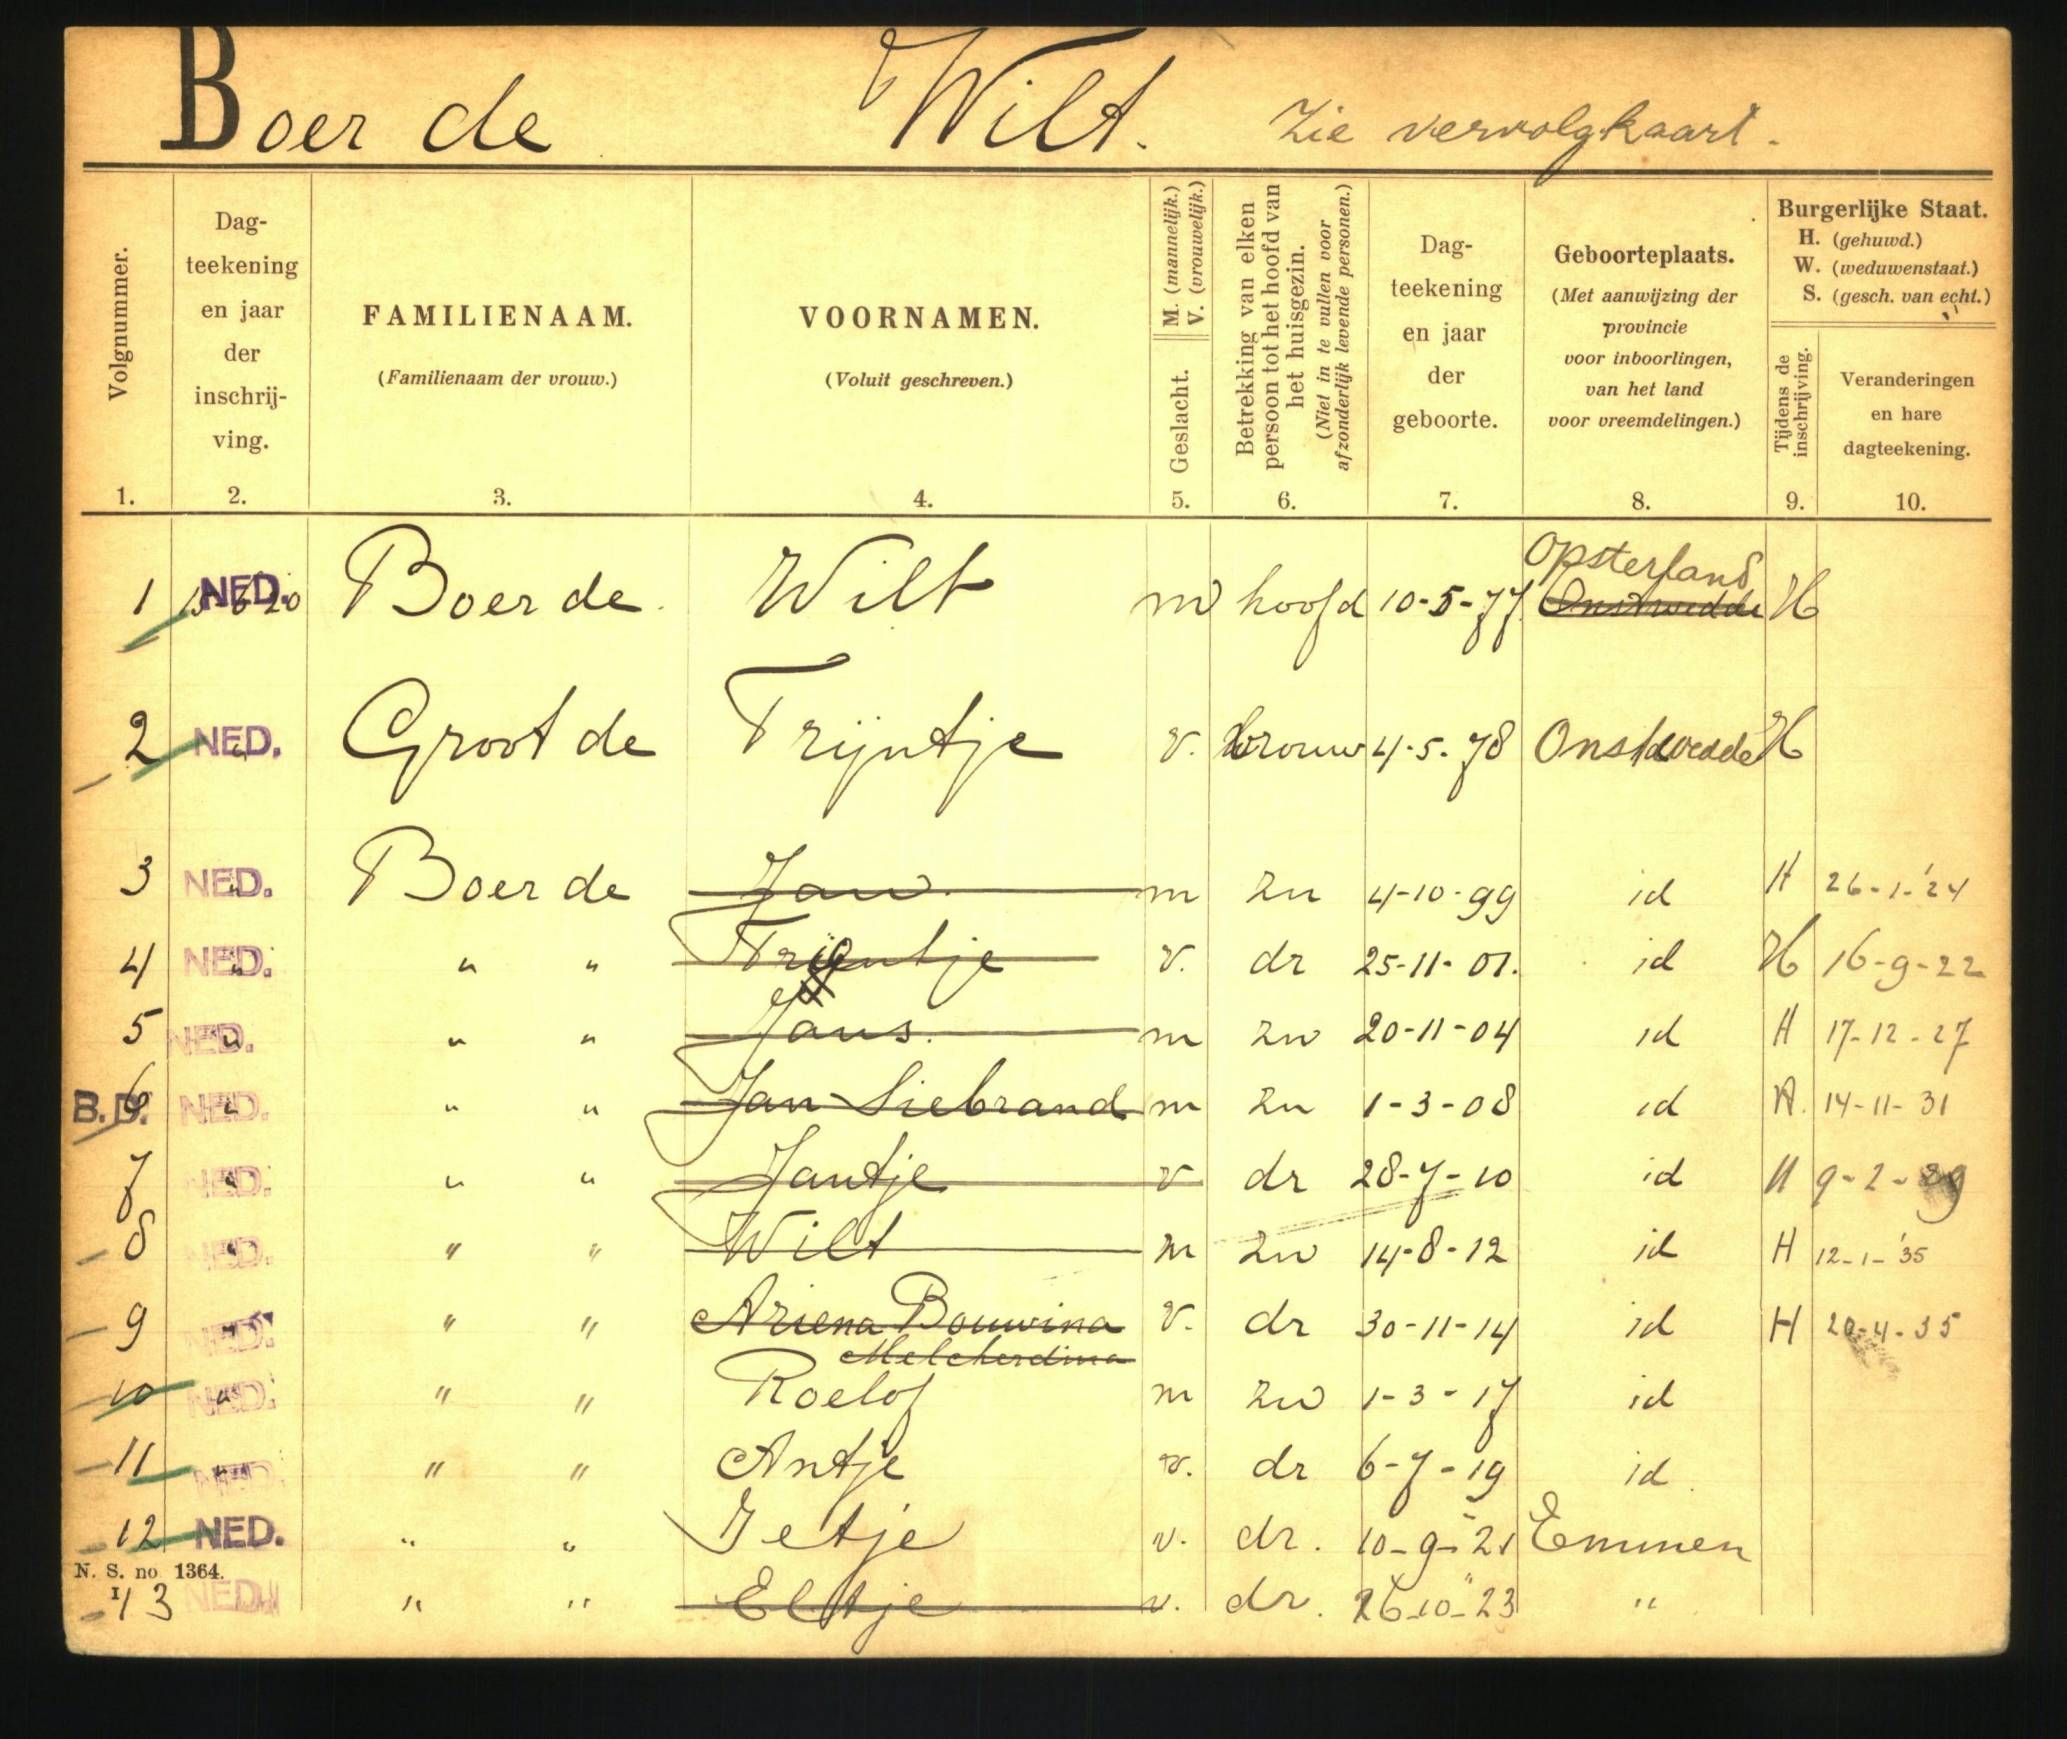 Boer de Wilt. Zie vervolgkaart.
Volgnummer.
1.
Dag-
teekening
en jaar
der
inschrij-
ving.
2.
FAMILIENAAM.
(Familienaam der vrouw.)
3.
VOORNAMEN.
(Voluit geschreven.)
4.
M. (mannelijk.)
V. (vrouwelijk.)
Geslacht.
5.
Betrekking van elken
persoon tot het hoofd van
het huisgezin.
(Niet in te vullen voor
afzonderlijk levende personen.)
6.
Dag-
teekening
en jaar
der
geboorte.
7.
Geboorteplaats.
(Met aanwijzing der
provincie
voor inboorlingen,
van het land
voor vreemdelingen.)
8.
Burgerlijke Staat.
H. (gehuwd.)
W. (weduwenstaat.)
S. (gesch. van echt.)
Tijdens de
inschrijving.
9.
Veranderingen
en hare
dagteekening.
10.
Opsterland
1 NED. Boer de Wilt m hoofd 10-5-77 Onstwedde H
2 NED. " Groot de Trijntje v. vrouw 4-5-78 Onstwedde H
3 NED. " Boer de Jan m zn 4-10-99 id H 26-1-'24
4 NED. " " " Trijntje v. dr 25-11-01. id H 16-9-22
5 NED. " " " Jans. m zn 20-11-04 id H 17-12-27
B.D. 6 NED. " " " Jan Siebrand m zn 1-3-08 id H. 14-11-31
7 NED. " " " Jantje v dr 28-7-10 id H 9-2-
8 NED. " " " Wilt m zn 14-8-12 id H 12-1-'35
9 NED. " " " Ariena Bouwina v. dr 30-11-14 id H 20-4-35
Melcherdina
10 NED. " " " Roelof m zn 1-3-17 id
11 NED. " " " Antje v. dr 6-7-19 id
12 NED. " " Jetje v. dr. 10-9-21 Emmen
N. S. no 1364.
13 NED. " " Eltje v. dr. 26-10-23 "